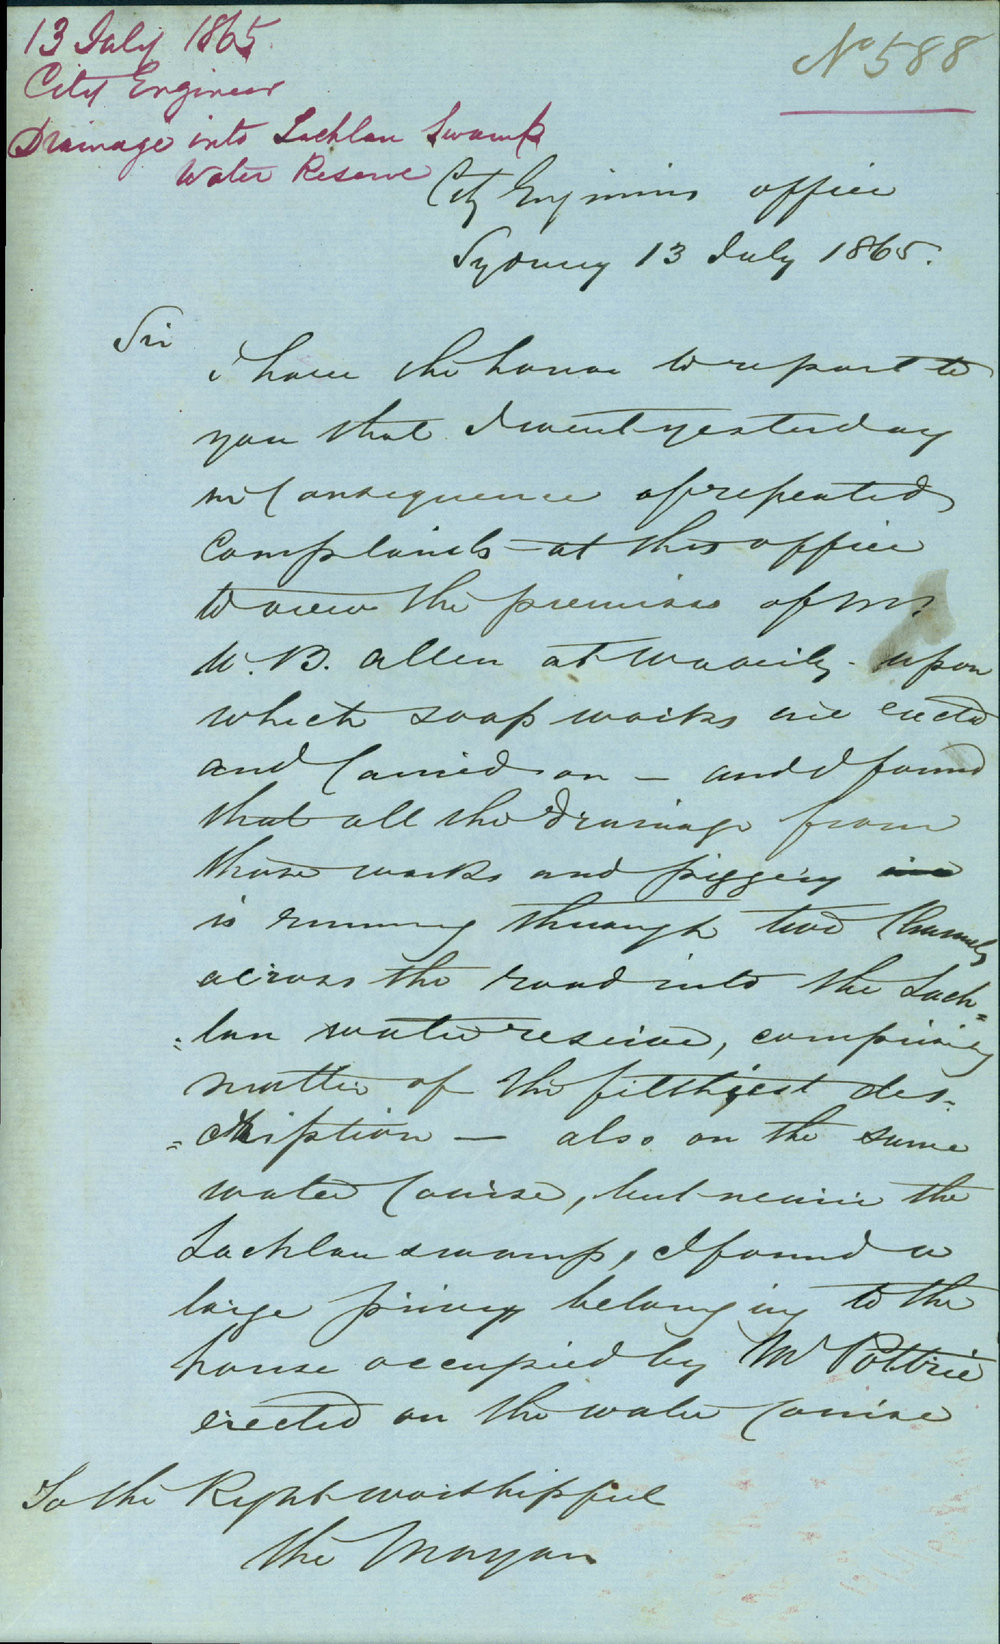 13 July 1865.
City Engineer
Drainage into Lachlan Swamp
Water Reserve
No 588
City Engineers office
Sydney 13 July 1865.
Sir
I have the honor to report to
you that I went yesterday
in Consequence of repeated
Complaints at this office
to view the premises of Mr.
W. B. Allen at Waverly - upon
which soap works are erected
and Carried on — and I found
that all the drainage from
those works and piggery
is running through two Channels
across the road into the Lach=
=lan water reserve, comprising
matter of the filthiest des=
=cription — also on the same
water Course, but nearer the
Lachlan swamp, I found a
large privy belonging to the
house occupied by Mr Pottrie
erected on the water Course
To the Right worshipful
the Mayor